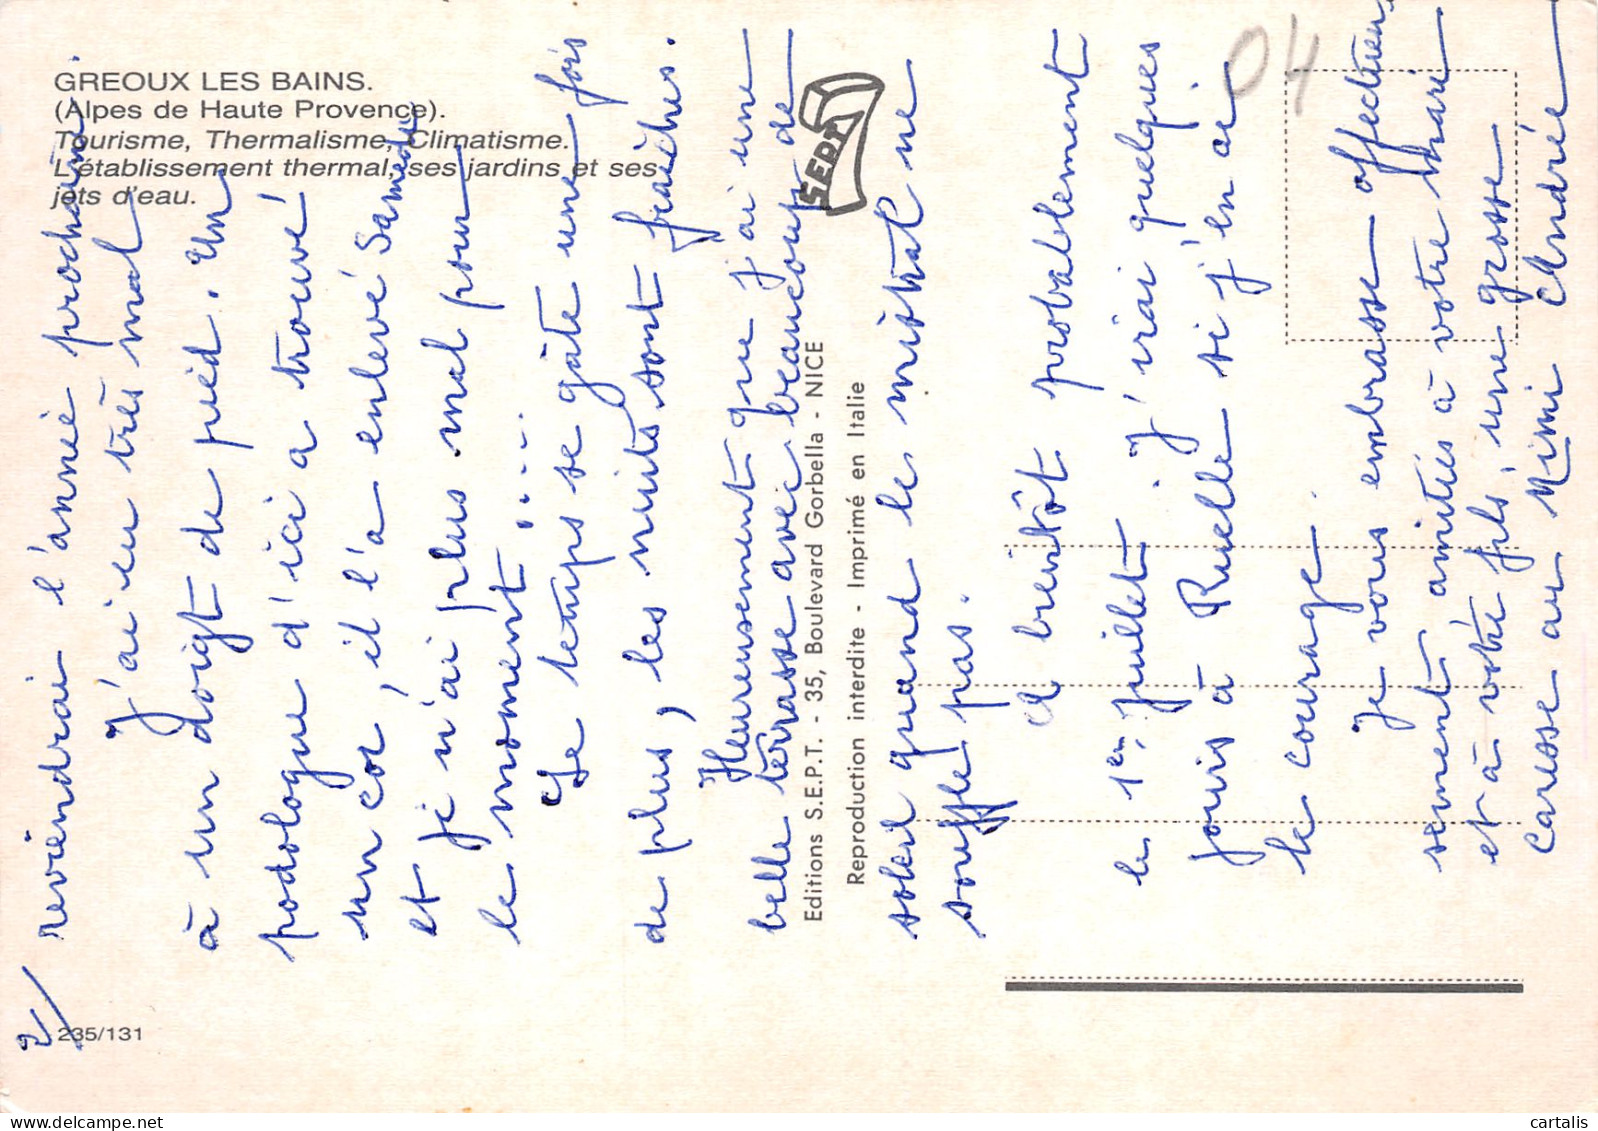 GREOUX LES BAINS.
(Alpes de Haute Provence).
Tourisme, Thermalisme, Climatisme.
L'établissement thermal, ses jardins et ses
jets d'eau.
235/131
SEPT
Editions S.E.P.T. - 35, Boulevard Gorbella - NICE
Reproduction interdite - Imprimé en Italie
04
2/
reviendrai l'année prochaine.
J'ai eu très mal
à un doigt de pied. Un
podologue d'ici a trouvé
un cor, il l'a enlevé Samedi
et je n'ai plus mal pour
le moment.....
Le temps se gâte une fois
de plus, les nuits sont fraîches.
Heureusement que j'ai une
belle terrasse avec beaucoup de
soleil quand le mistral ne
souffle pas.
A bientôt probablement
le 1er juillet. J'irai quelques
jours à Ruelle si j'en ai
le courage.
Je vous embrasse affectueu-
sement amitiés à votre mari
et à votre fils, une grosse
caresse au Mimi Andrée
cartalis